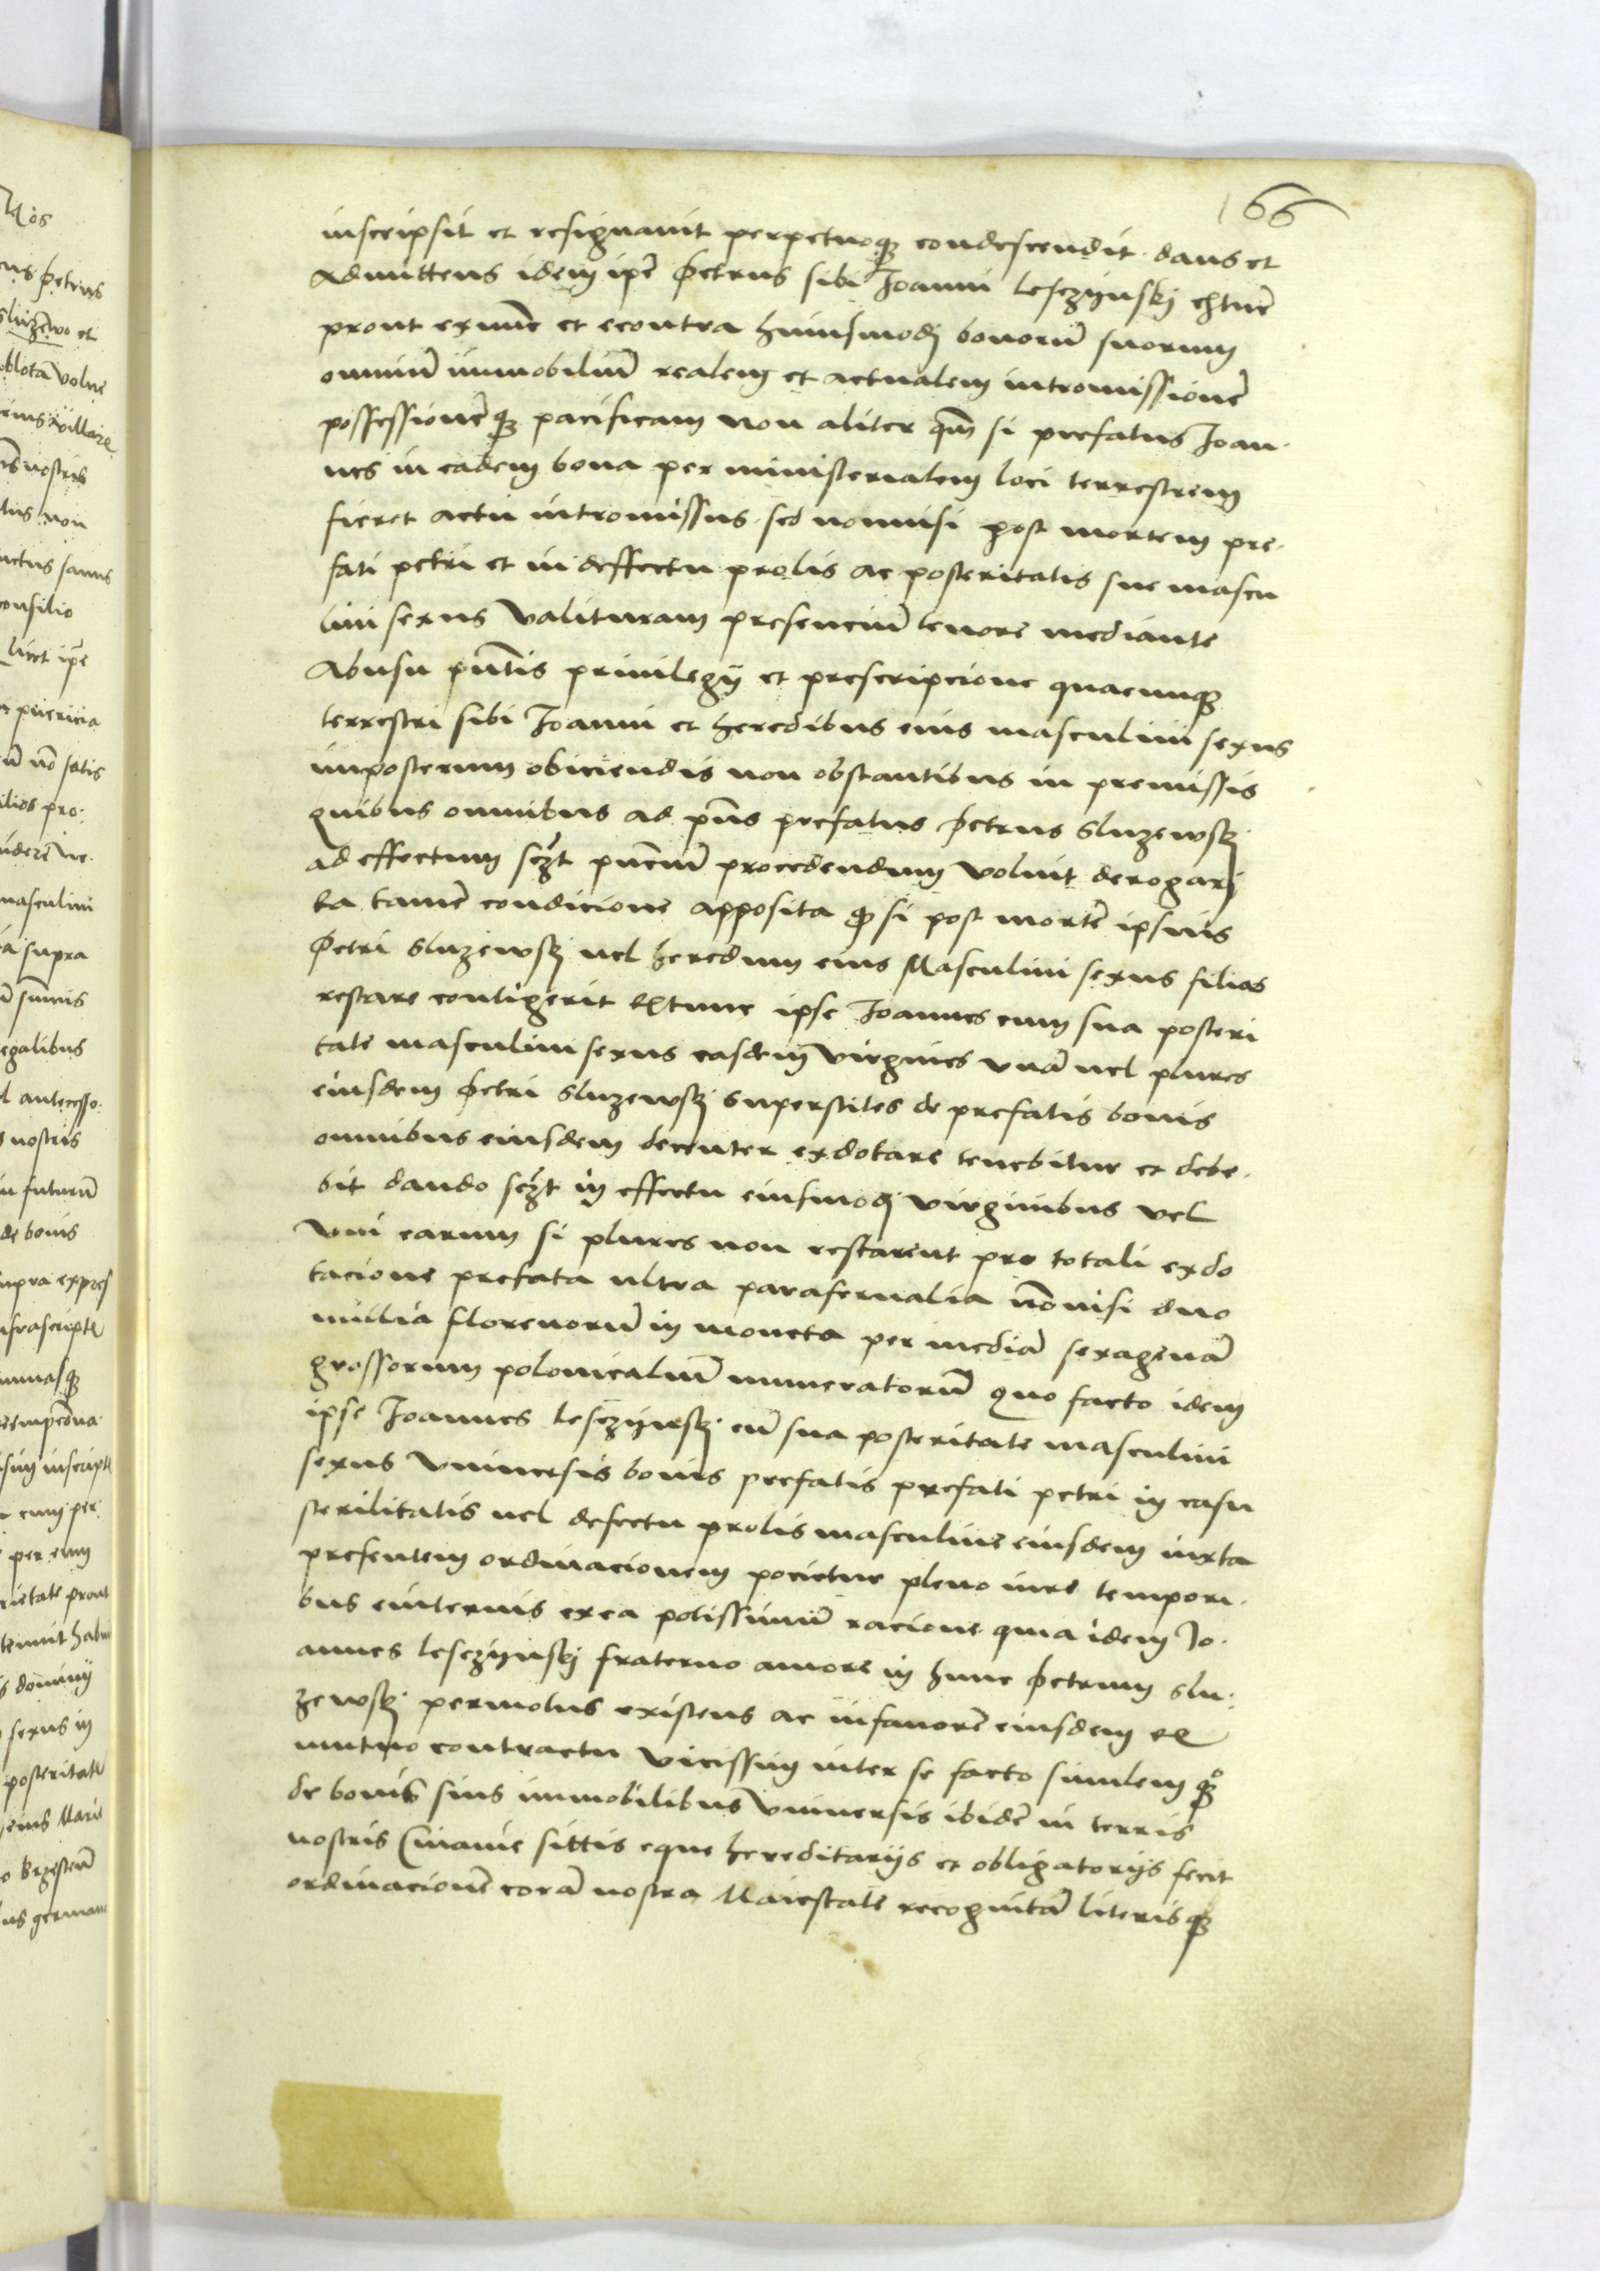 66
inscripsit et resignavit perpetuoq3 condescendit. dans et
Admittens idem ipe Petrus sibi Joanni Lesczynskj
prout extunc et econtra huiusmodj bonorū suorum
omniū immobiliū realem et actualem intromissionē
possessionēq3 pacificam non aliter qm si prefatus Joan-
nes in eadem bona per ministerialem loci terrestrem
fieret actu intromissus. sed nonnisi post mortem pre-
fati petri et in deffectu prolis ac posteritatis sue mascu
lini sexus Valituram presenciū tenore mediante
Abusu pntis privilegÿ et prescripcione quacunq3
terrestri sibi Joanni et heredibus eius masculini sexus
imposterum obiciendis non obstantibus in premissis
quibus omnibus ad pns prefatus Petrus Sluzewskj
ad effectum sczt pnciū procedendum voluit derogarj
Ea tamē condicione apposita qz si post mortē ipsius
Petri Sluzewskj vel heredum eius Masculini sexus filias
restare contigerit Extunc ipse Joannes cum sua posteri
tate masculini sexus easdem virgines vnā vel plures
eiusdem Petri Sluzewskj superstites de prefatis bonis
omnibus eiusdem decenter exdotare tenebitur et debe-
bit dando sczt in effectu eiusmodj virginibus vel
vni earum si plures non restarent pro totali exdo
tacione prefata ultra parafernalia nōnisi duo
millia florenorū in moneta per mediā sexagenā
grossorum polonicaliū numeratorū Quo facto idem
ipse Joannes Lesczynskj cū sua posteritate masculini
sexus Vniversis bonis prefatis prefati petri in casu
sterilitatis vel defectu prolis masculine eiusdem iuxta
presentem ordinacionem pocietur pleno iure tempori-
bus eviternis ex ea potissimū racione quia idem Jo-
annes Lesczynskj fraterno amore in hunc Petrum Slu-
zewskj permotus existens ac in favorē eiusdem ex
mutuo contractu vicissim inter se facto similem
de bonis suis immobilibus Vniversis ibidē in terris
nostris Cuiavie sittis eque hereditarijs et obligatorijs fecit
ordinacionē corā nostra Maiestate recognitā literisq3